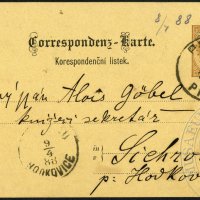 8/7 88
Correspondenz-Karte.
Korespondenční lístek.
pán Alois Göbel
knížecí sekretár
in
v
Sichro
p: Hodkov
9/7
88
HODKOVICE